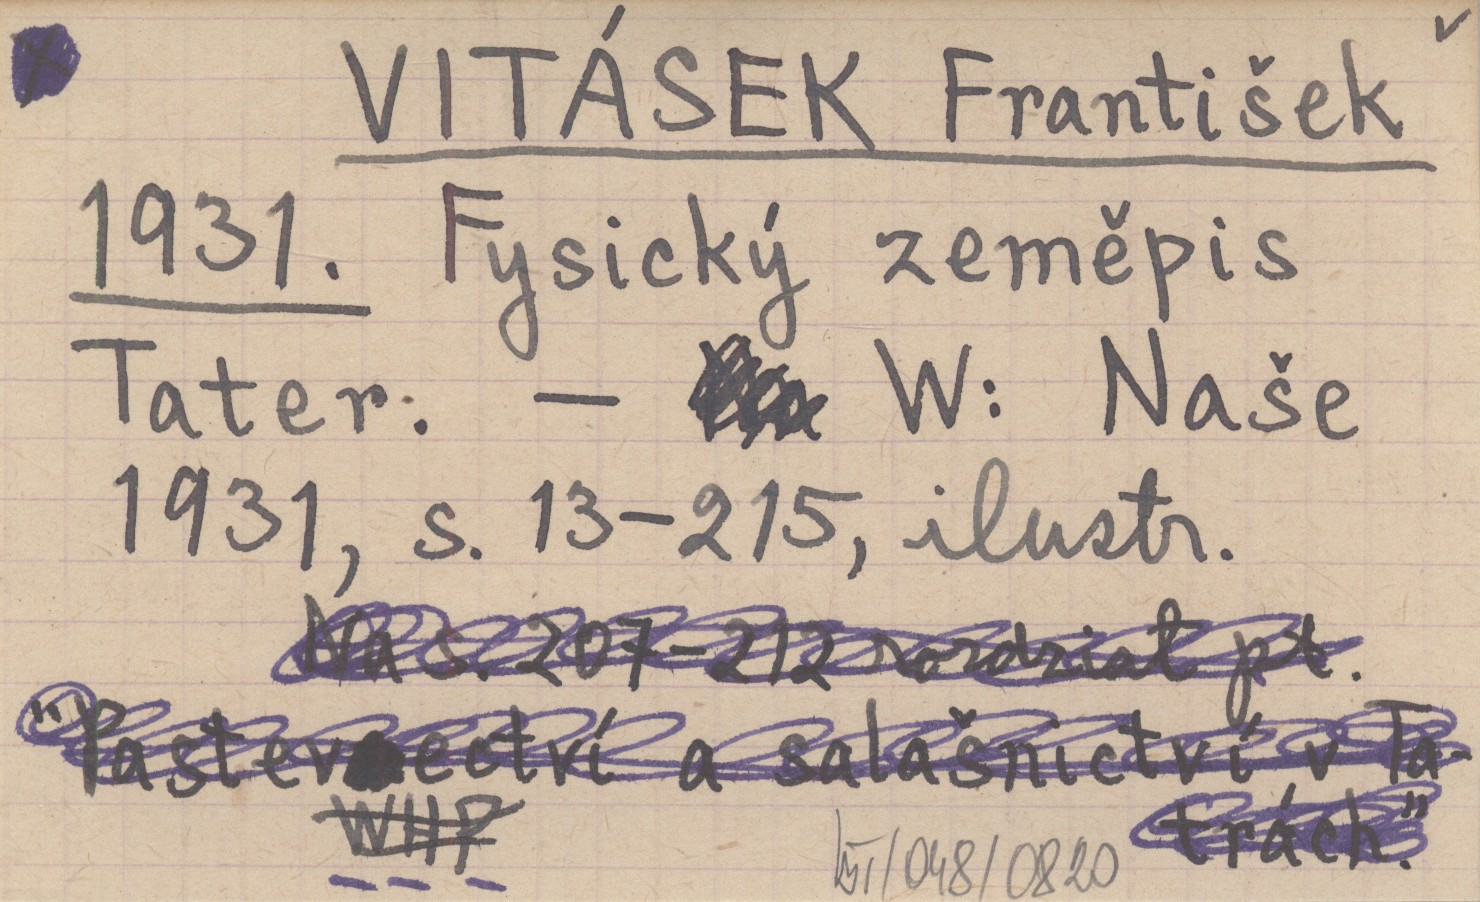 VITÁSEK František
1931. Fysický zeměpis
Tater. — W: Naše
1931, s. 13-215, ilustr.
Na s. 207-212 rozdział pt.
"Pastevectví a salašnictví v Ta-
trách."
WHP
/048/0820